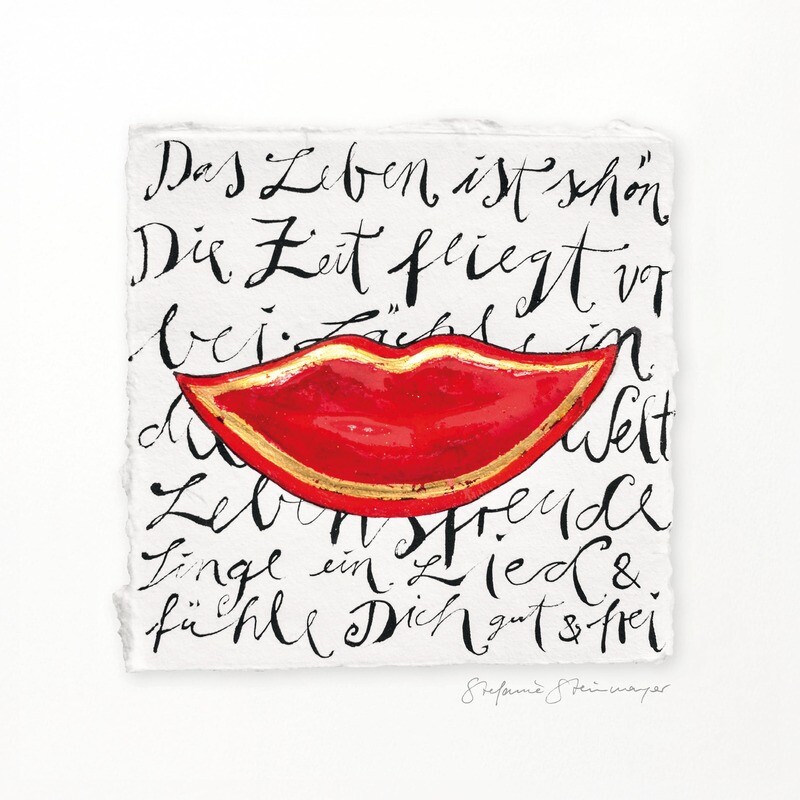 Das Leben ist schön
Die Zeit fliegt vor
bei. Lächle in
die Welt
Lebensfreude
Singe ein Lied &
fühle Dich gut & frei
Stefanie Steinmayer